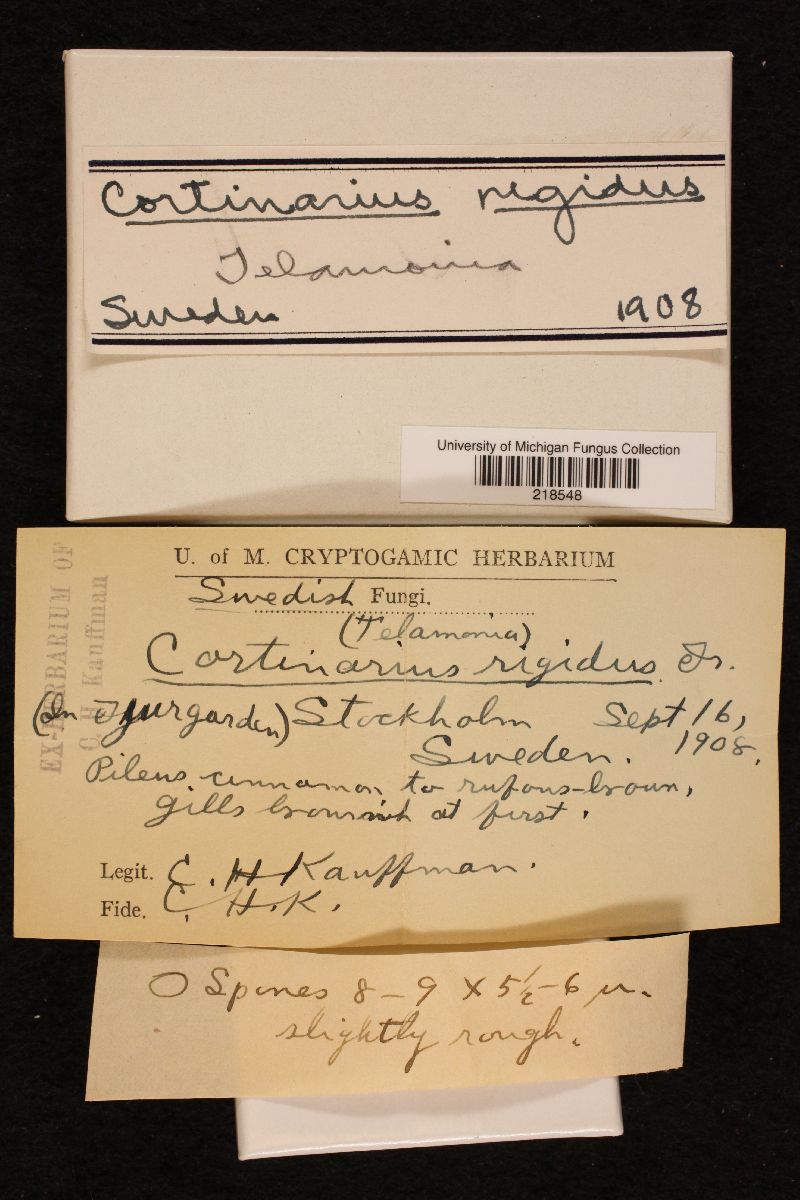 Cortinarius rigidus
Telamonia
Sweden 1908
University of Michigan Fungus Collection
218548
EX-HERBARIUM OF
C. H. Kauffman
U. of M. CRYPTOGAMIC HERBARIUM
Swedish Fungi.
(Telamonia)
Cortinarius rigidus Fr.
(In Djurgarden) Stockholm Sept 16,
Sweden. 1908.
Pileus cinnamon to rufous-brown,
gills brownish at first.
Legit. C. H Kauffman.
Fide. C. H. K.
Spores 8-9 X 5½-6 µ.
slightly rough.